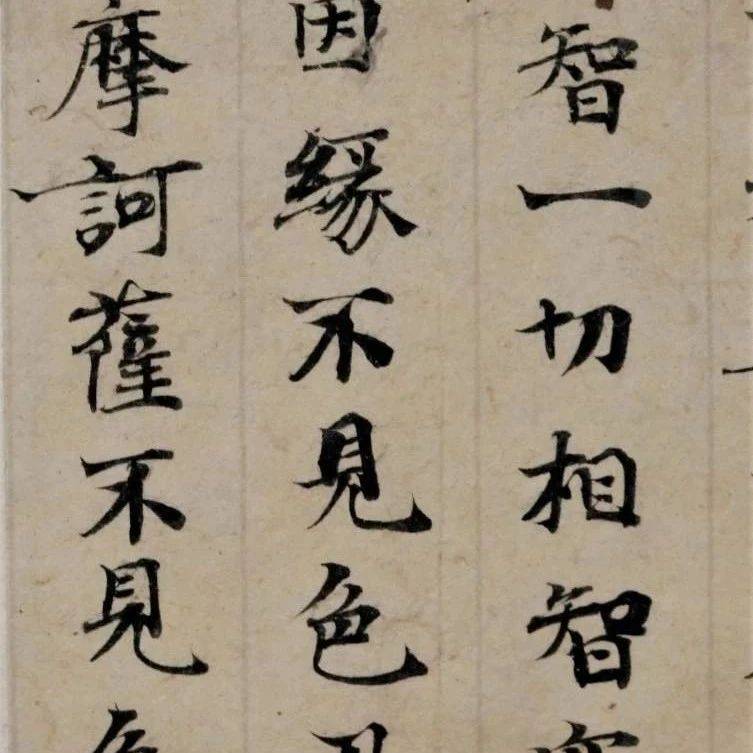 智一切相智
因緣不見色
摩訶薩不見